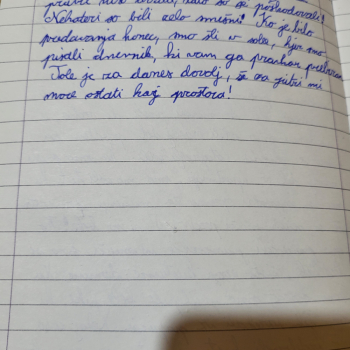 so se posladovali!
Nekateri so bili zelo smešni! Ko je bilo
predavanja konec, smo šli v sobe, kjer smo
pisali dnevnik, ki vam ga pravkar
Tole je za danes dovolj, še za jutri mi
more ostati kaj prostora!